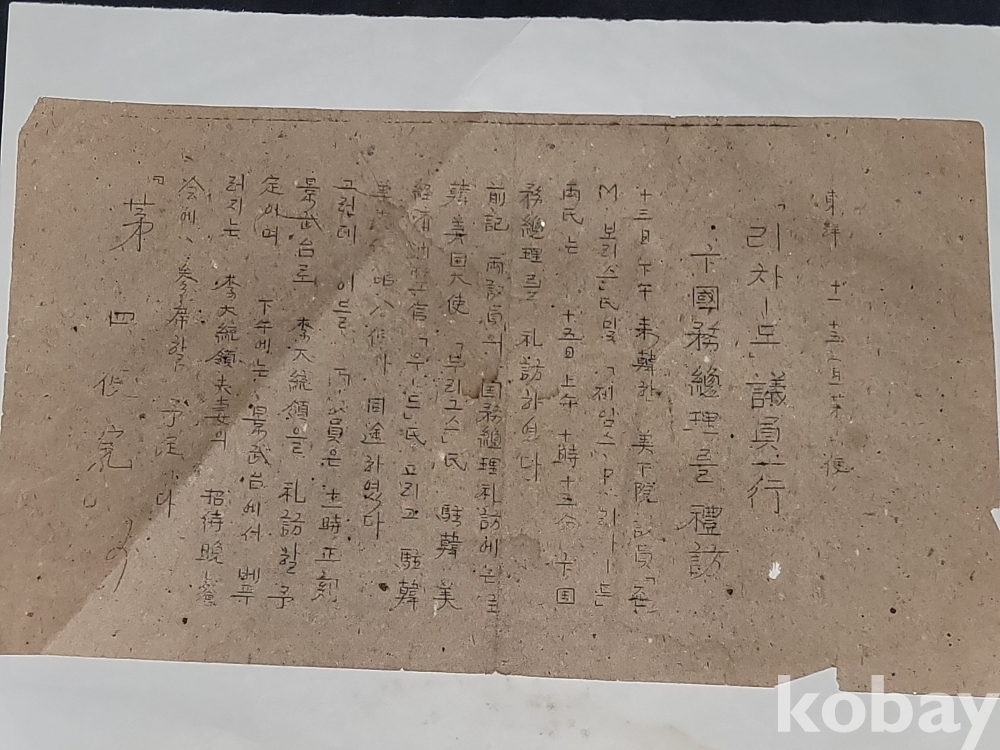 東洋 十一 十五日 第 便
「리챠ー드」議員一行
卞國務總理를 禮訪
十三日下午 来韓한 美下院議員「존
M 보리슨氏 및 「제임스 P 리챠ー드」
両氏는 十五日上午 十時十五分 卞国
務總理를 礼訪하였다
前記 両議員의 国務總理礼訪에는 
韓美国大使 「부리그스」氏 駐韓 美
経済 官 「우드」氏 그리고 駐韓
美 同途하였다
그런데 이들 議員은 十一時正刻
景武台로 李大統領을 礼訪할 予
定이며 下午에는 景武台에서 베푸
러지는 李大統領夫妻의 招待晩餐
会에 参席할 予定이다
「第四便完」
kobay